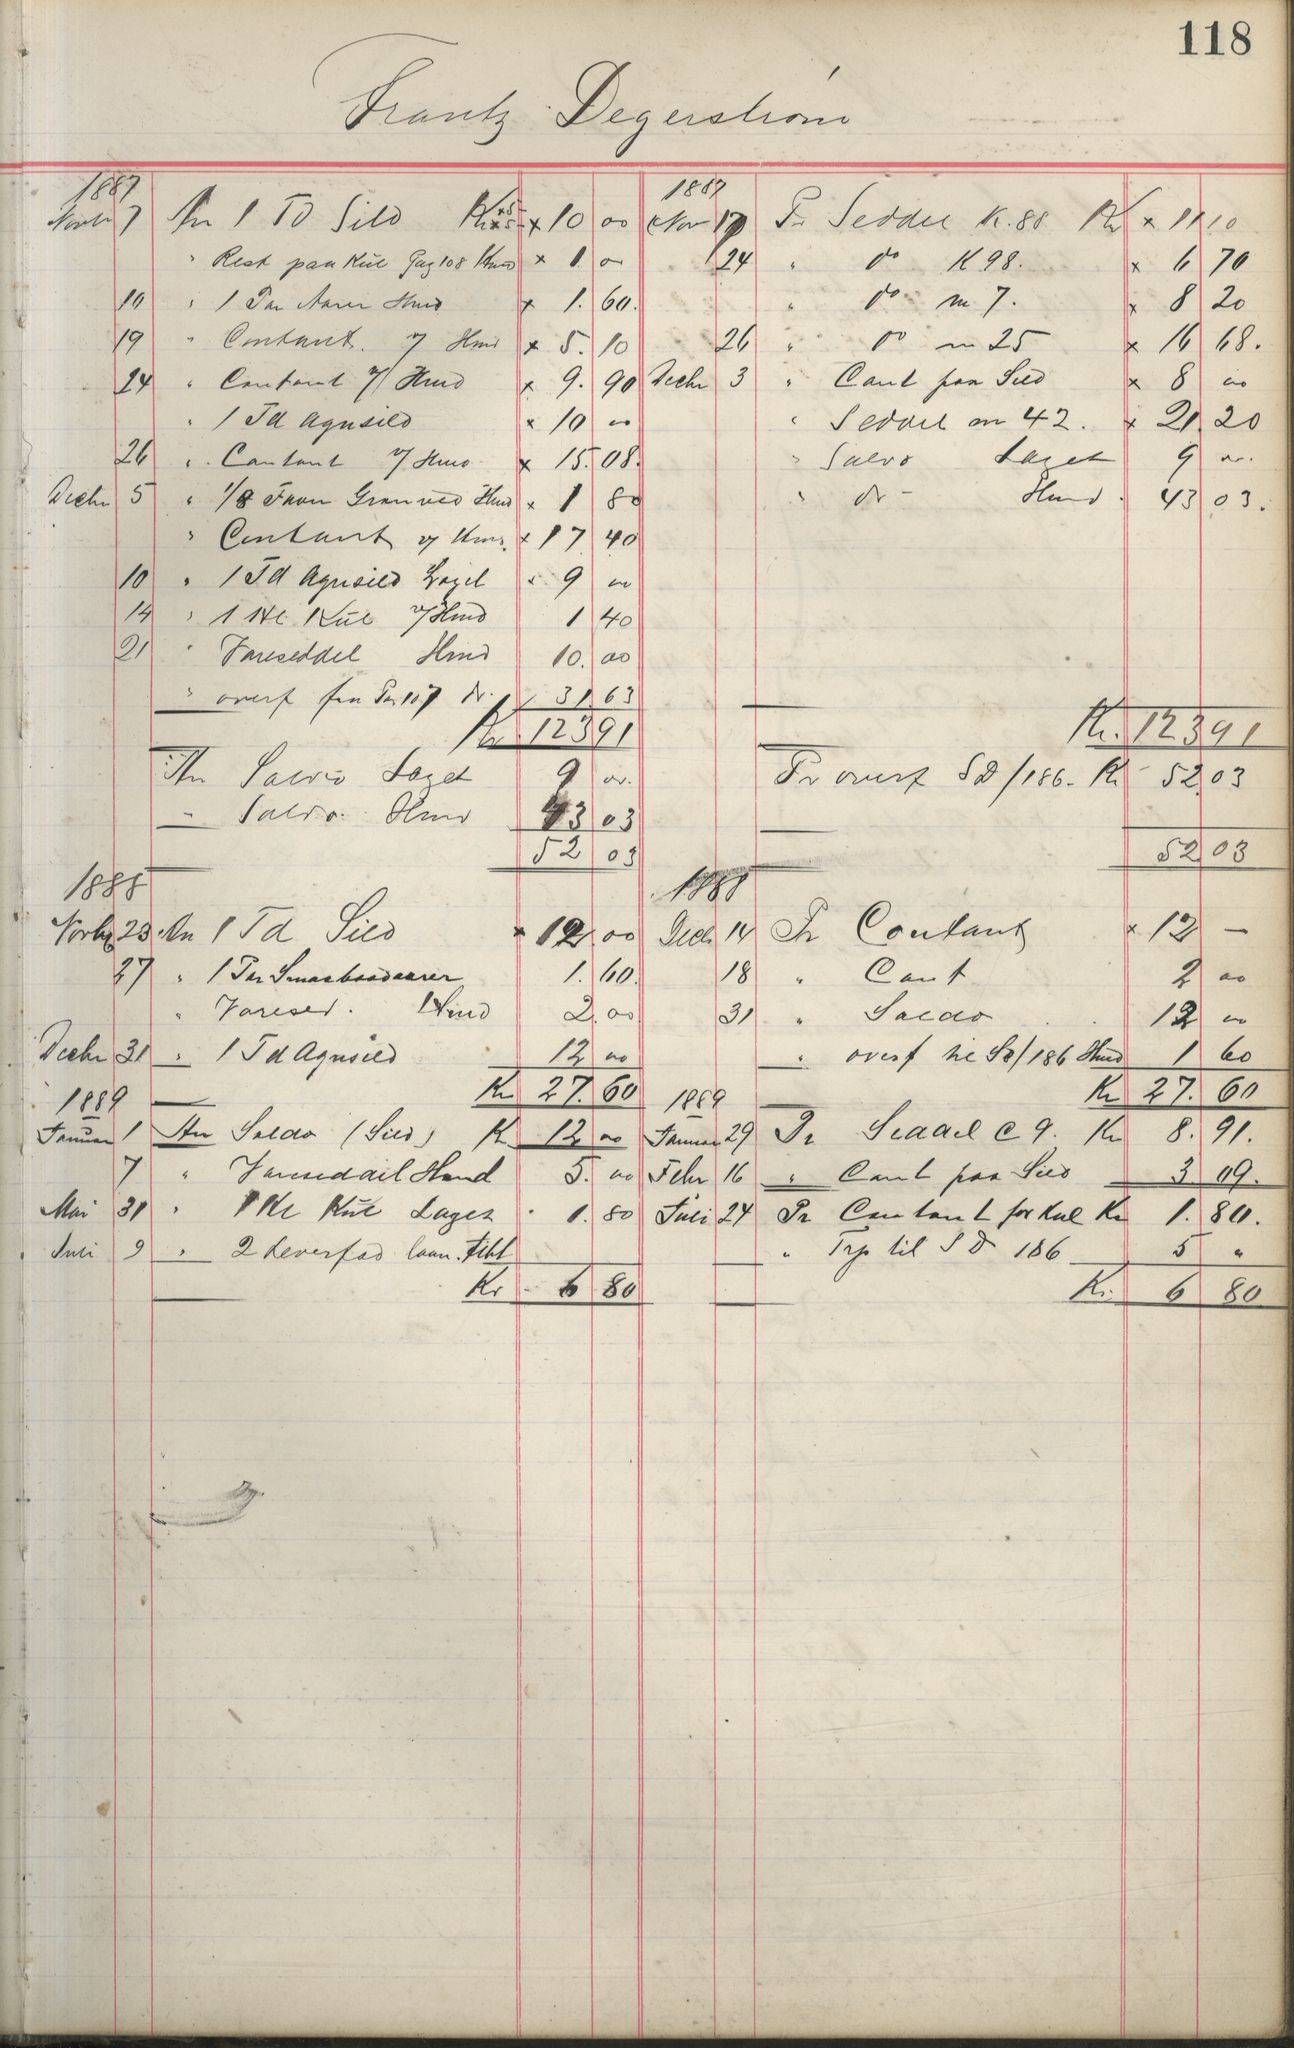 118
Frantz Degerström
1887
Novbr 7 An 1 Td Sild Kr × 10 00
" Rest paa Kul Pag 108 Hmd × 1. 00
10 " 1 Par Aarer Hmd × 1. 60.
19 " Contant. v/ Hmd × 5. 10
24 " Contant v/ Hmd × 9. 90
" 1 Td Agnsild × 10 00
26 " Contant v/ Hmd × 15. 08.
Decbr 5 " 1/8 Favn Granved Hmd × 1 80
" Contant v/ Hmd. × 17 40
10 " 1 Td Agnsild Laget × 9 00
14 " 1 Hl. Kul v/ Hmd 1 40
21 " Vareseddel Hmd 10. 00
" overf fra Pag 107 31 63
Kr 123 91
An Saldo Laget 9 00.
" Saldo. Hmd 43 03
52 03
1887
Nov 17 Pr Seddel K. 88 Kr × 11 10
24 " do K 98. × 6 70
" do m 7. × 8 20
26 " do m 25 × 16 68.
Decbr 3 " Cont paa Sild × 8 00
" Seddel m 42. × 21. 20
" Saldo Laget 9 00.
" do - Hmd. 43 03.
Kr. 123 91
Pr overf SD/186. Kr 52 03
52 03
1888
Novbr 23 An 1 Td Sild × 12 00
27 " 1 Par Smaabaadaarer 1. 60.
" Varesed. Hmd 2. 00
Decbr 31 " 1 Td Agnsild 12 00
Kr 27. 60
1888
Decb 14 Pr Contant × 12 —
18 " Cont 2 00
31 " Saldo 12 00
" overf til SD/186 Hmd 1 60
Kr 27. 60
1889
Januar 1 An Saldo (Sild) Kr 12 00
7 " Vareseddel Hmd 5. 00
Mai 31 " 1 Hl Kul Laget 1. 80
Juli 9 " 2 Leverfad laan. tibt
Kr 6 80
1889
Januar 29 Pr Seddel C 9. Kr 8. 91.
Febr 16 " Cont paa Sild 3 09.
Juli 24 Pr Contant for Kul Kr 1. 80.
" Trp til SD 186 5 "
Kr. 6 80